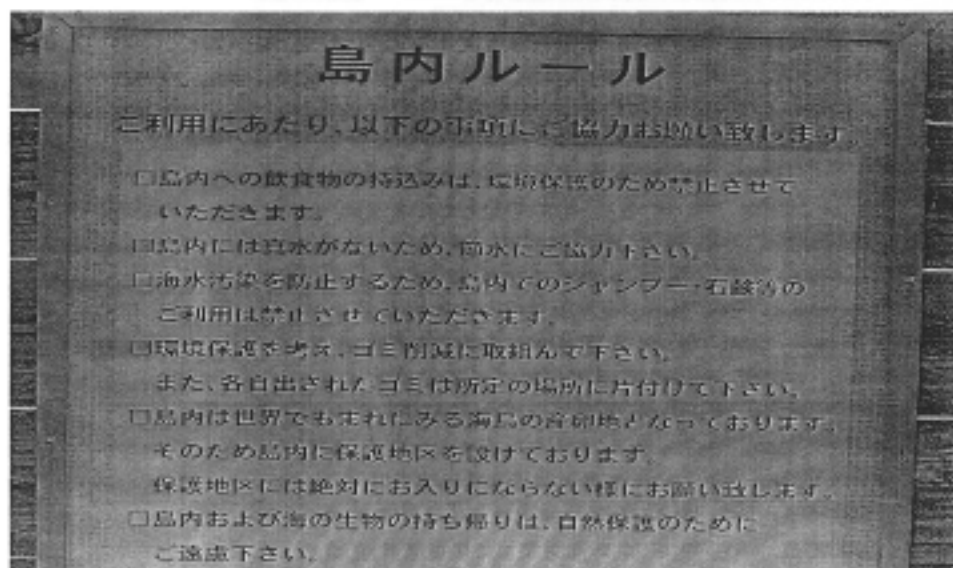 島内ルール
ご利用にあたり、以下の事項にご協力お願い致します。
□島内への飲食物の持込みは、環境保護のため禁止させて
いただきます。
□島内には真水がないため、節水にご協力下さい。
□海水汚染を防止するため、島内でのシャンプー・石鹸等の
ご利用は禁止させていただきます。
□環境保護を考え、ゴミ削減に取組んで下さい。
また、各自出されたゴミは所定の場所に片付けて下さい。
□島内は世界でもまれにみる海鳥の産卵地となっております。
そのため島内に保護地区を設けております。
保護地区には絶対にお入りにならない様にお願い致します。
□島内および海の生物の持ち帰りは、自然保護のために
ご遠慮下さい。